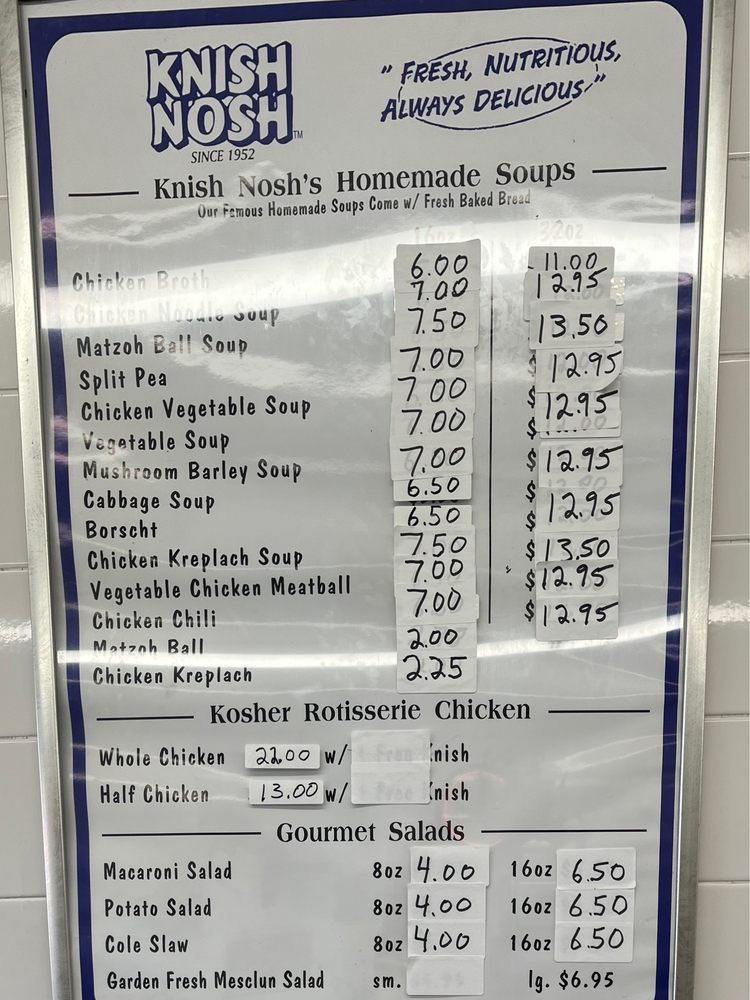 KNISH
NOSH TM
SINCE 1952
" FRESH, NUTRITIOUS,
ALWAYS DELICIOUS "
Knish Nosh's Homemade Soups
Our Famous Homemade Soups Come w/ Fresh Baked Bread
16oz 32oz
Chicken Broth 6.00 11.00
Chicken Noodle Soup 7.00 12.95
Matzoh Ball Soup 7.50 13.50
Split Pea 7.00 $ 12.95
Chicken Vegetable Soup 7.00 $ 12.95
Vegetable Soup 7.00 $
Mushroom Barley Soup 7.00 $ 12.95
Cabbage Soup 6.50 $
Borscht 6.50 $ 12.95
Chicken Kreplach Soup 7.50 $ 13.50
Vegetable Chicken Meatball 7.00 $ 12.95
Chicken Chili 7.00 $ 12.95
Matzoh Ball 2.00
Chicken Kreplach 2.25
Kosher Rotisserie Chicken
Whole Chicken 22.00 w/ Knish
Half Chicken 13.00 w/ Knish
Gourmet Salads
Macaroni Salad 8oz 4.00 16oz 6.50
Potato Salad 8oz 4.00 16oz 6.50
Cole Slaw 8oz 4.00 16oz 6.50
Garden Fresh Mesclun Salad sm. lg. $6.95